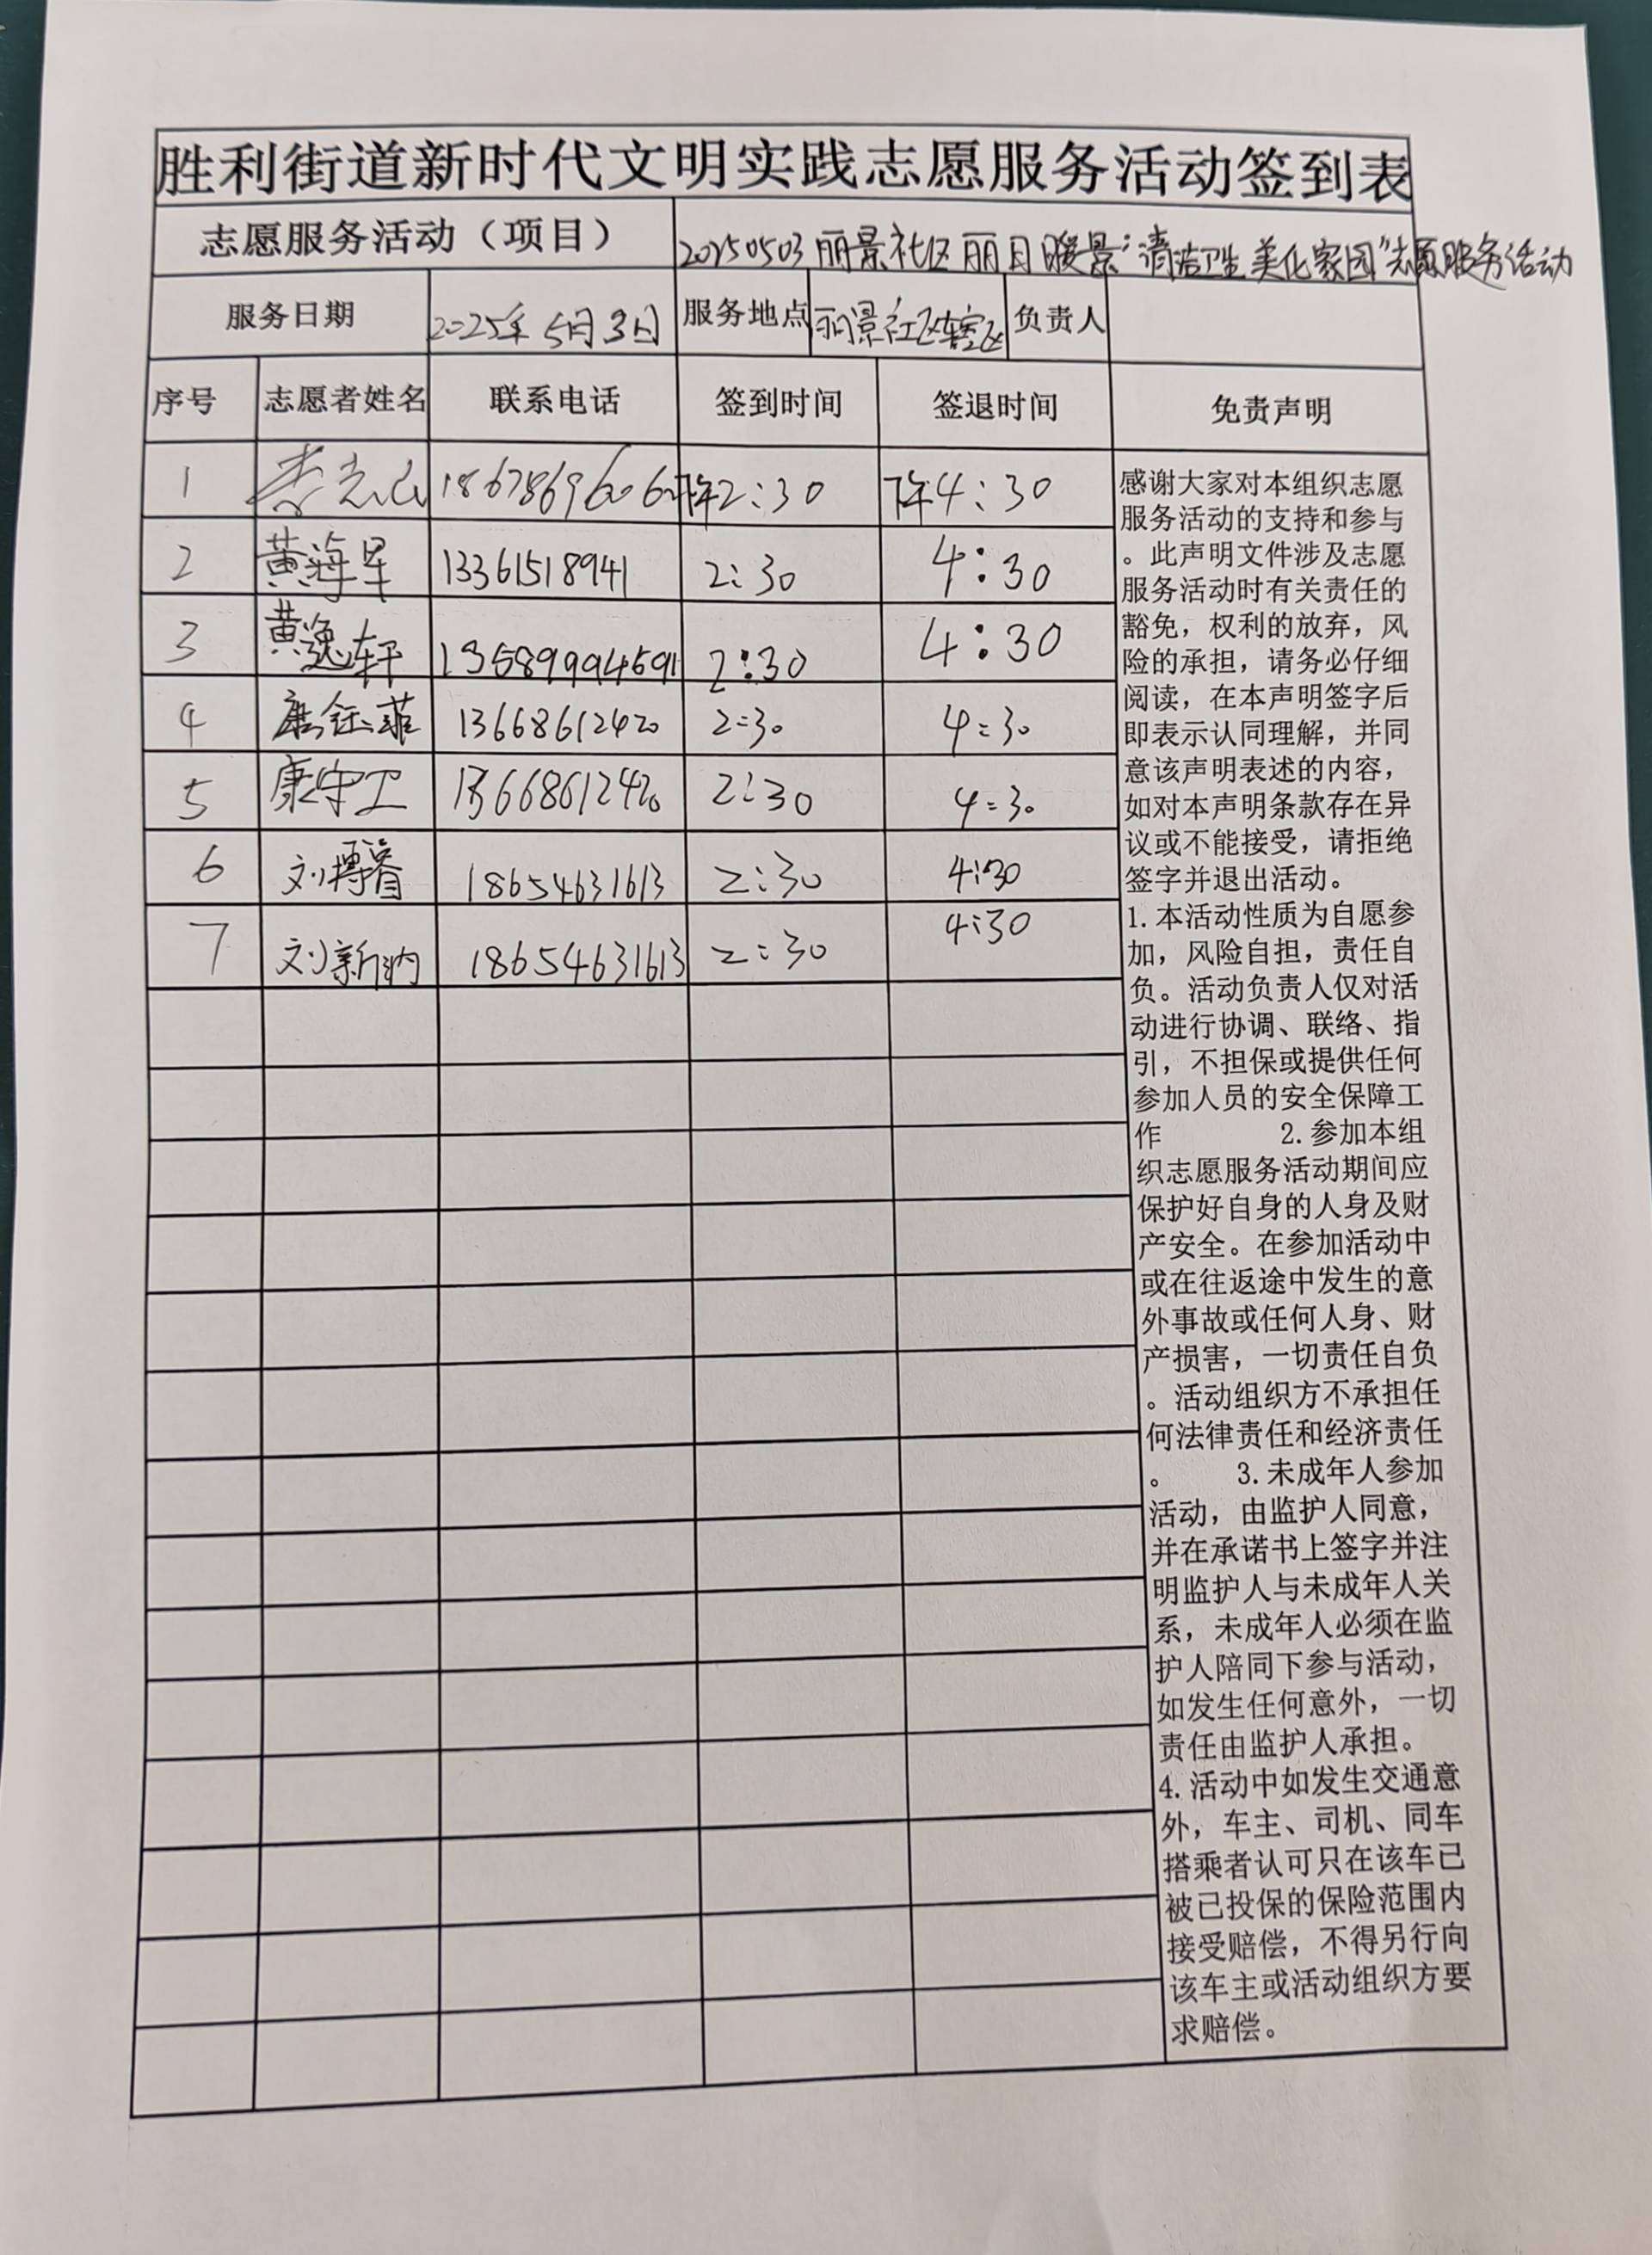 胜利街道新时代文明实践志愿服务活动签到表
志愿服务活动（项目） 20250503丽景社区丽日暖景"清洁卫生美化家园"志愿服务活动
服务日期 2025年5月3日 服务地点 丽景社区辖区 负责人
序号 志愿者姓名 联系电话 签到时间 签退时间 免责声明
1 李 18678696062 下午2:30 下午4:30
2 黄海军 13361518941 2:30 4:30
3 黄逸轩 13589994591 2:30 4:30
4 康钰菲 13668612420 2:30 4:30
5 康守卫 13668612420 2:30 4:30
6 刘搏睿 18654631613 2:30 4:30
7 刘新 18654631613 2:30 4:30
感谢大家对本组织志愿
服务活动的支持和参与
。此声明文件涉及志愿
服务活动时有关责任的
豁免，权利的放弃，风
险的承担，请务必仔细
阅读，在本声明签字后
即表示认同理解，并同
意该声明表述的内容，
如对本声明条款存在异
议或不能接受，请拒绝
签字并退出活动。
1.本活动性质为自愿参
加，风险自担，责任自
负。活动负责人仅对活
动进行协调、联络、指
引，不担保或提供任何
参加人员的安全保障工
作 2.参加本组
织志愿服务活动期间应
保护好自身的人身及财
产安全。在参加活动中
或在往返途中发生的意
外事故或任何人身、财
产损害，一切责任自负
。活动组织方不承担任
何法律责任和经济责任
。 3.未成年人参加
活动，由监护人同意，
并在承诺书上签字并注
明监护人与未成年人关
系，未成年人必须在监
护人陪同下参与活动，
如发生任何意外，一切
责任由监护人承担。
4.活动中如发生交通意
外，车主、司机、同车
搭乘者认可只在该车已
被已投保的保险范围内
接受赔偿，不得另行向
该车主或活动组织方要
求赔偿。